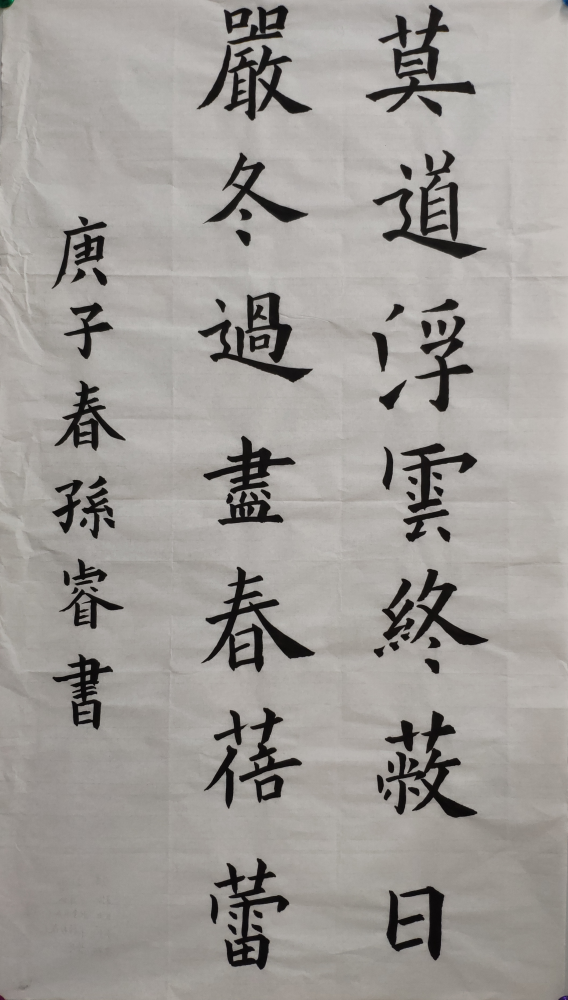 莫道浮雲終蔽日
嚴冬過盡春蓓蕾
庚子春孫睿書